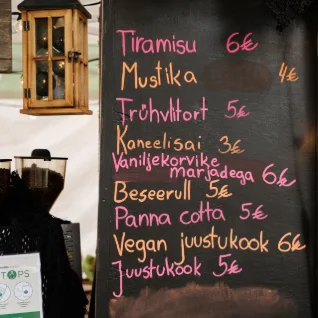 Tiramisu 6€
Mustika 4€
Trühvlitort 5€
Kaneelisai 3€
Vaniljekorvike
marjadega 6€
Beseerull 5€
Panna cotta 5€
Vegan juustukook 6€
Juustukook 5€
TOPS